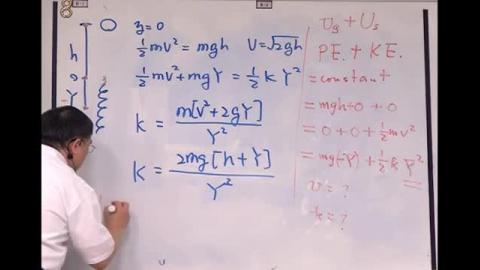 h
0
-Y
y=0
½mv²=mgh V=√2gh
½mv²+mgY=½kY²
k=m[v²+2gY]/Y²
k=2mg[h+Y]/Y²
Ug+Us
P.E.+K.E.
=constant
=mgh+0+0
=0+0+½mv²
=mg(-Y)+½kY²
v=?
k=?